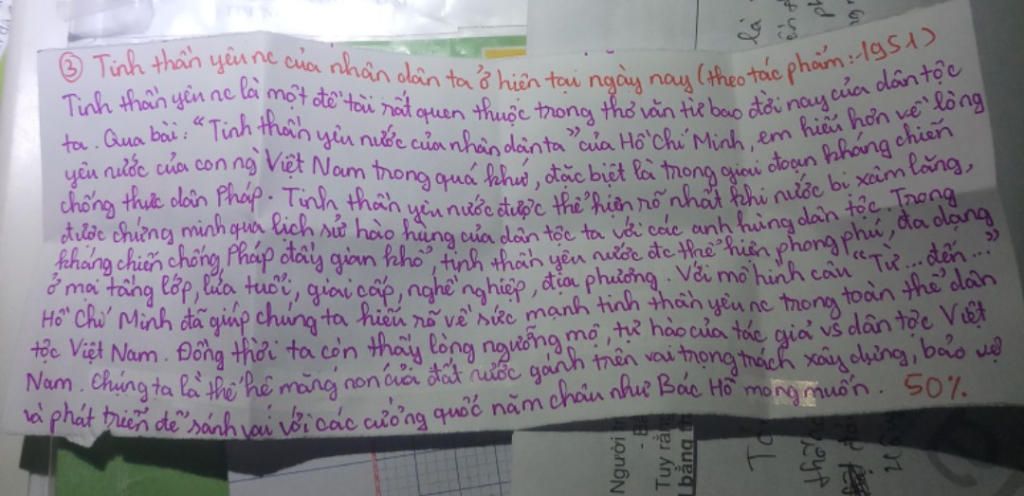 ③ Tinh thần yêu nc của nhân dân ta ở hiện tại ngày nay (theo tác phẩm: 1951)
Tinh thần yêu nc là một đề tài rất quen thuộc trong thơ văn từ bao đời nay của dân tộc
ta. Qua bài: "Tinh thần yêu nước của nhân dân ta" của Hồ Chí Minh, em hiểu hơn về lòng
yêu nước của con ng Việt Nam trong quá khứ, đặc biệt là trong giai đoạn kháng chiến
chống thực dân Pháp. Tinh thần yêu nước được thể hiện rõ nhất khi nước bị xâm lăng,
được chứng minh qua lịch sử hào hùng của dân tộc ta với các anh hùng dân tộc. Trong
kháng chiến chống Pháp đầy gian khổ, tinh thần yêu nước đc thể hiện phong phú, đa dạng
ở mọi tầng lớp, lứa tuổi, giai cấp, nghề nghiệp, địa phương. Với mô hình câu "Từ...đến..."
Hồ Chí Minh đã giúp chúng ta hiểu rõ về sức mạnh tinh thần yêu nc trong toàn thể dân
tộc Việt Nam. Đồng thời ta còn thấy lòng ngưỡng mộ, tự hào của tác giả vs dân tộc Việt
Nam. Chúng ta là thế hệ măng non của đất nước gánh trên vai trọng trách xây dựng, bảo vệ
và phát triển để sánh vai với các cường quốc năm châu như Bác Hồ mong muốn. 50%
Người
Tuy rằng
bằng